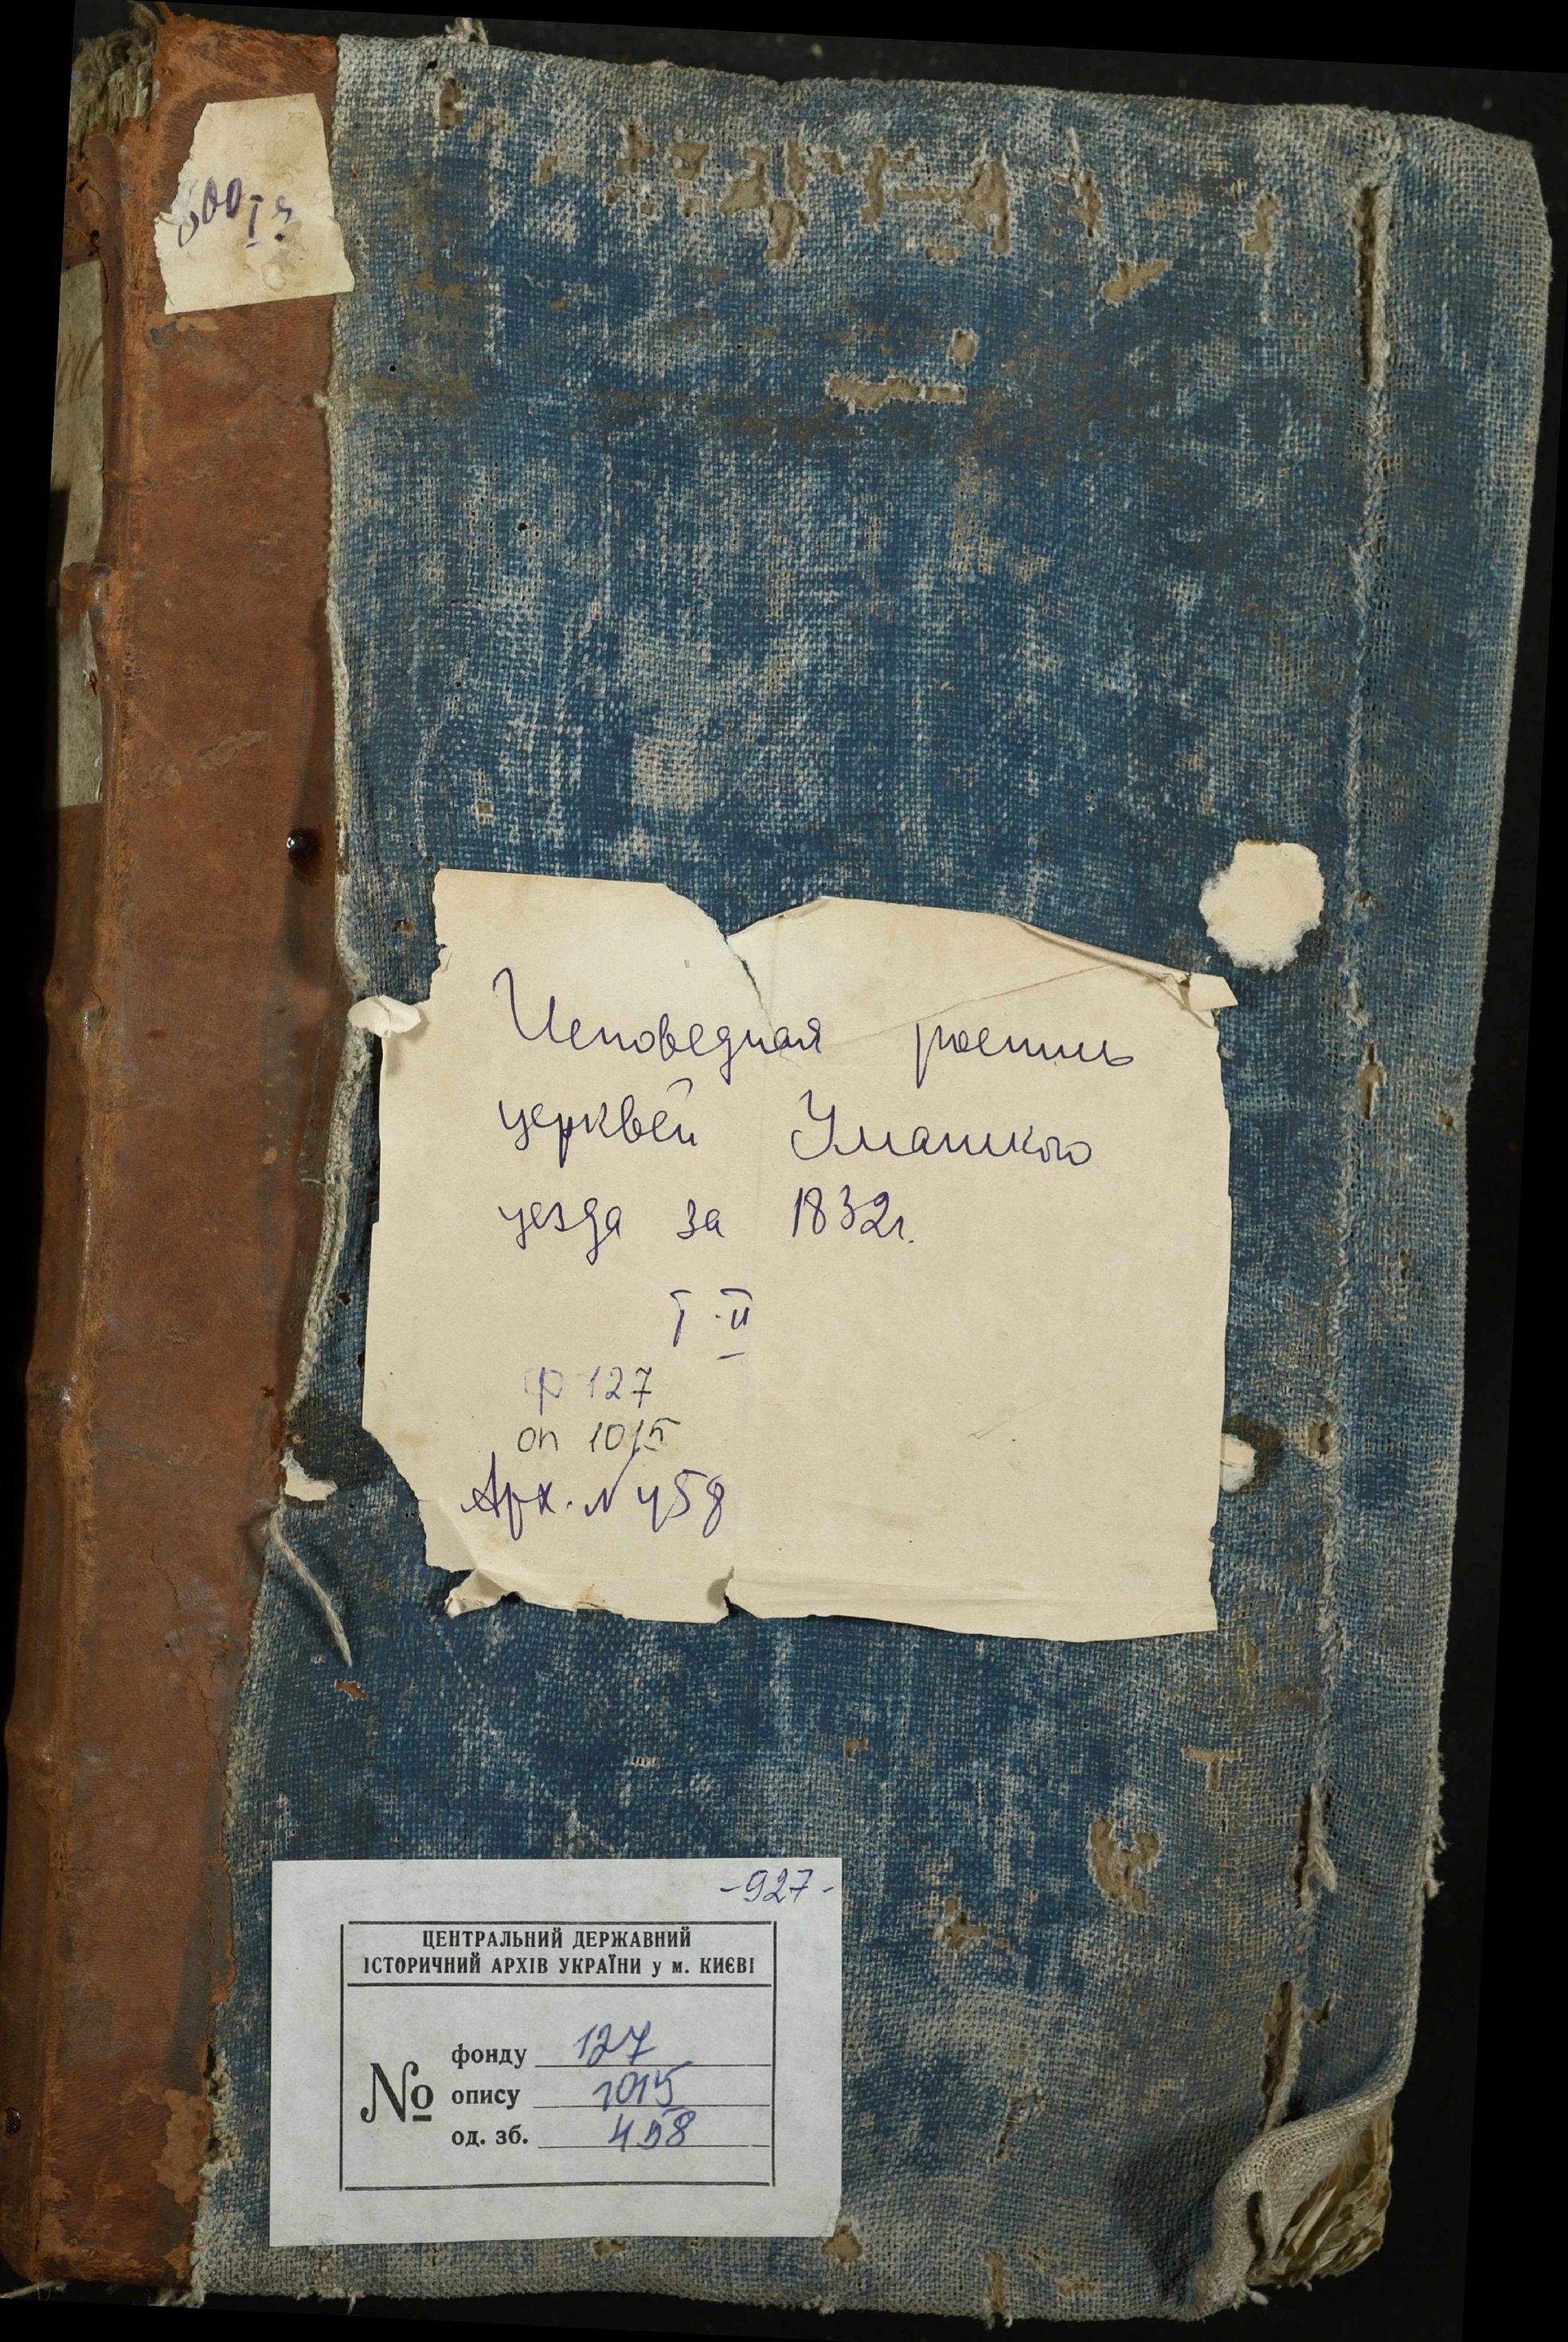 Исповедная роспись
церквей Уманского
уезда за 1832г.
Т. II
ф 127
оп 1015
Арх. № 458
-927-
ЦЕНТРАЛЬНИЙ ДЕРЖАВНИЙ
ІСТОРИЧНИЙ АРХІВ УКРАЇНИ у м. КИЄВІ
№
фонду 127
опису 1015
од. зб. 458